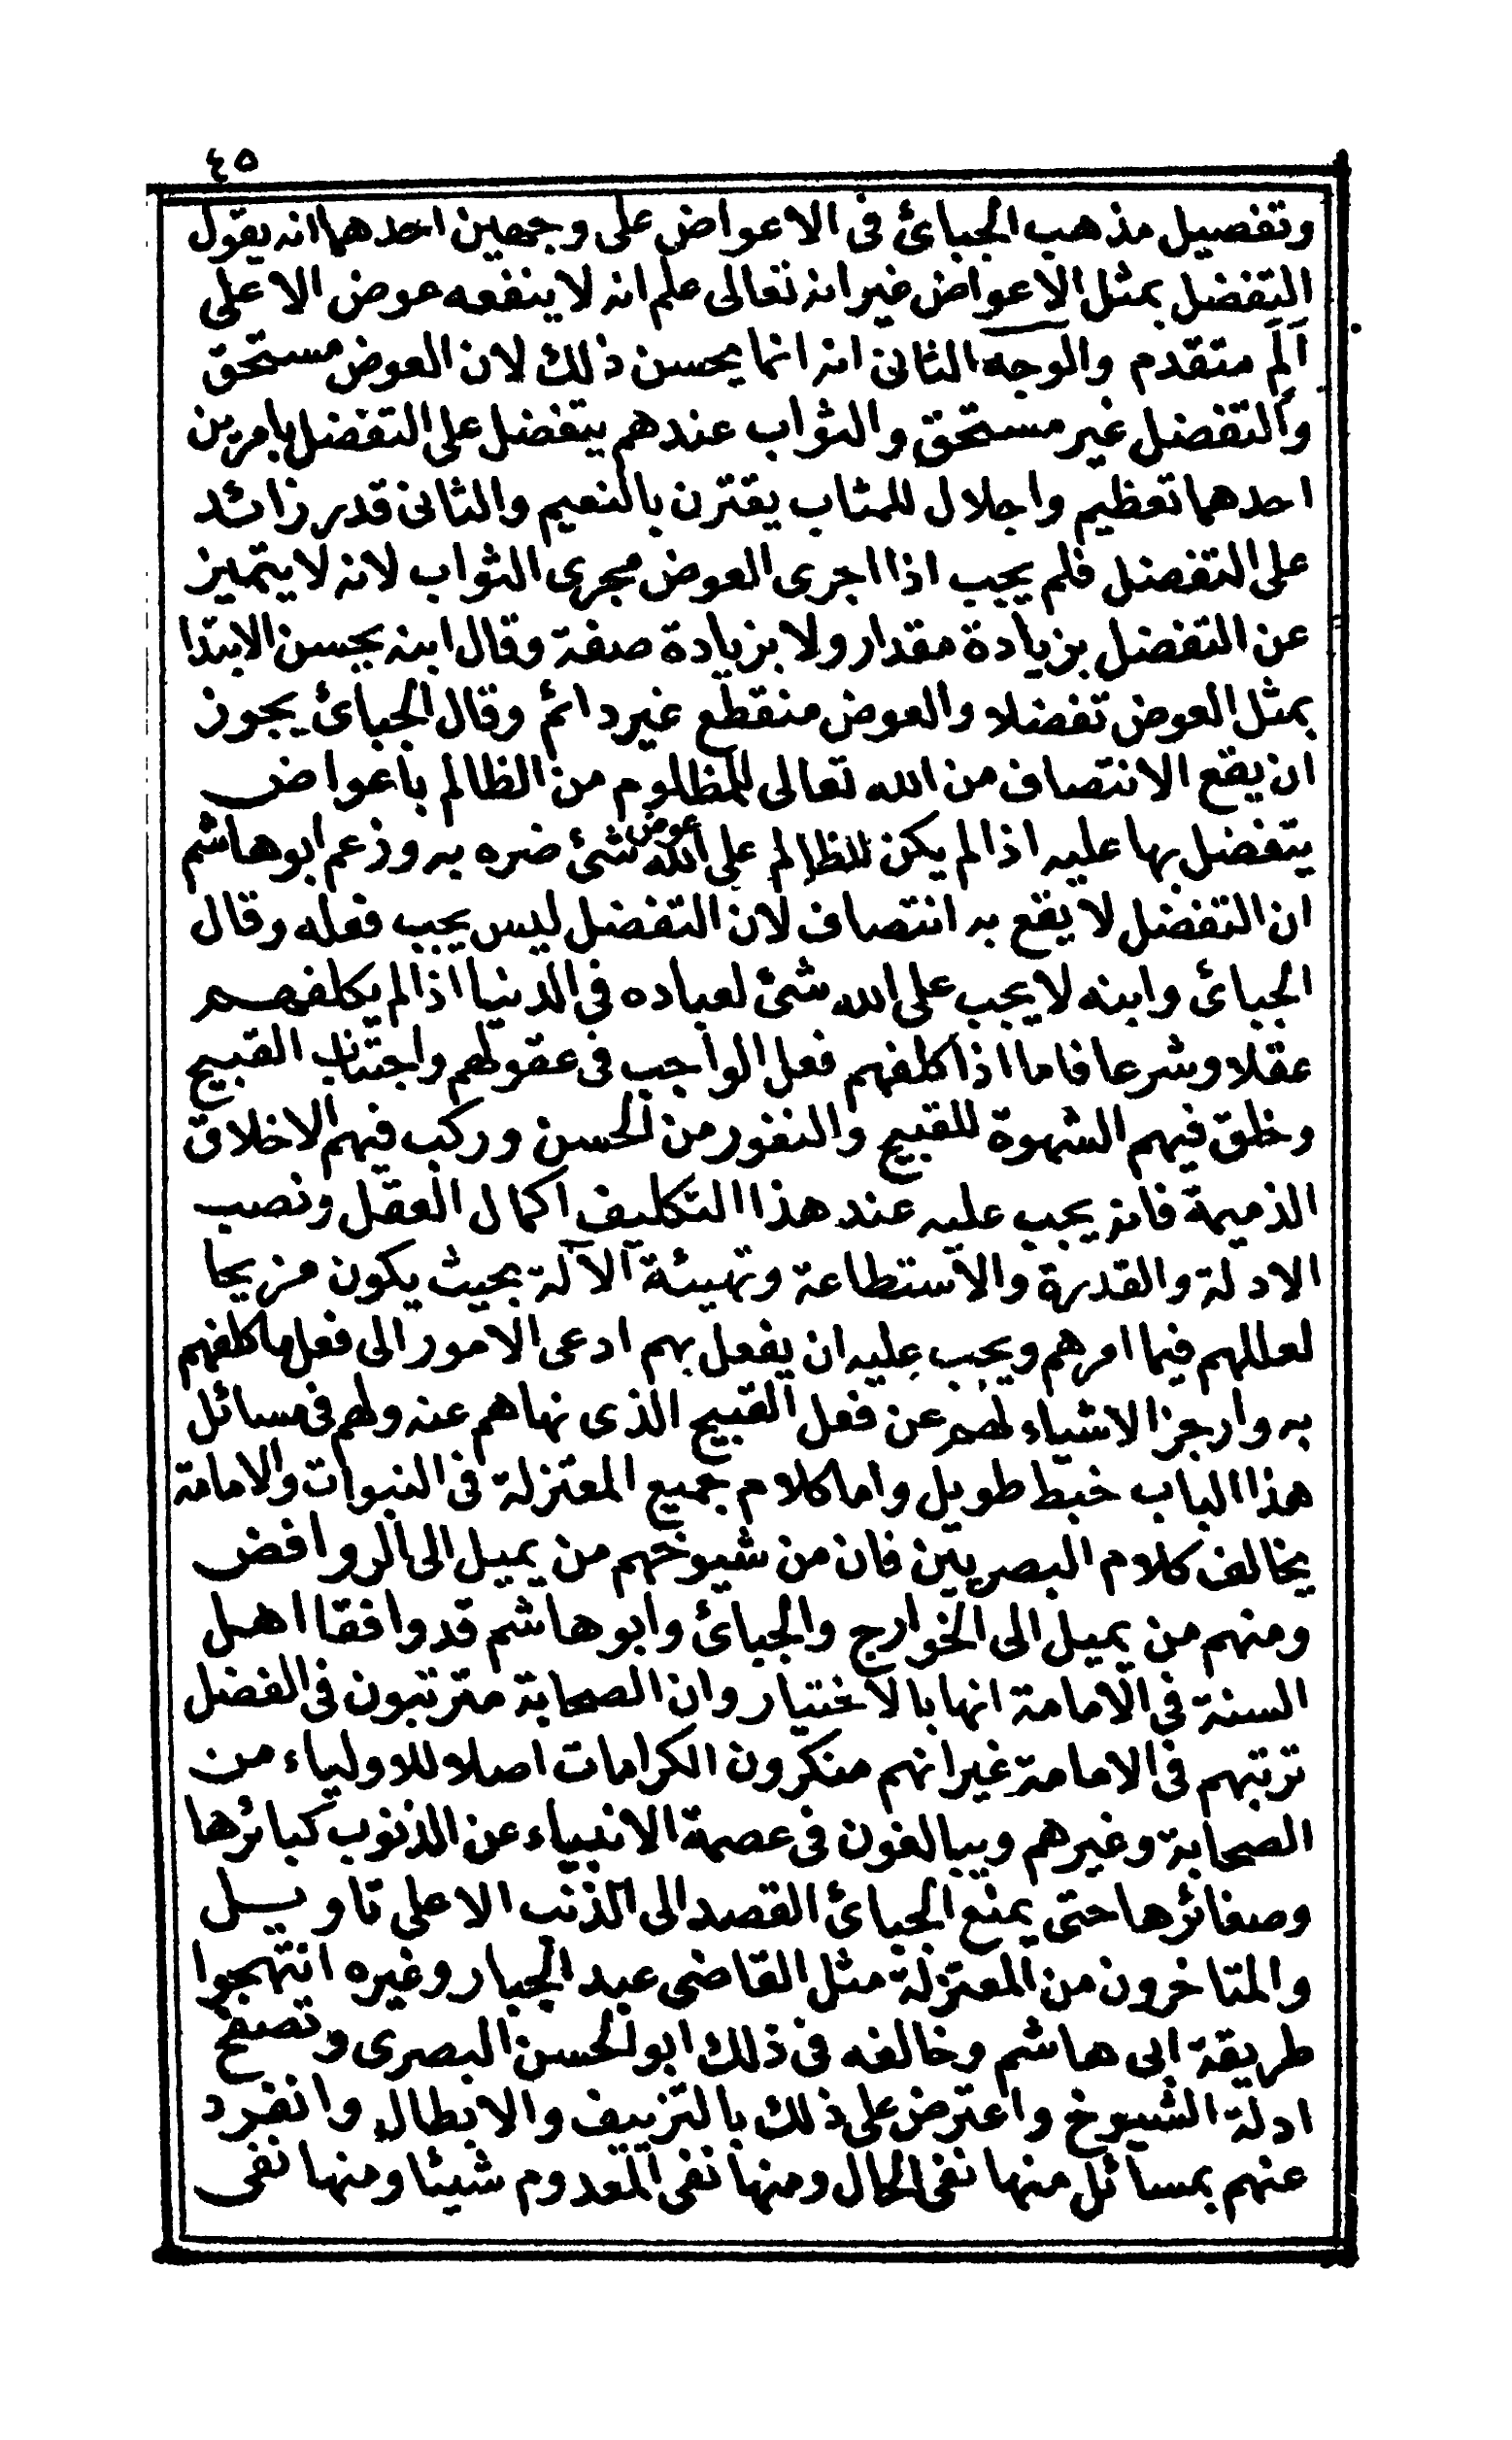 ٤٥
وتفصيل مذهب الجبائ فى الاعواض على وجهين احدهما انه يقول
التفضل بمثل الاعواض غير انه تعالى علم انه لا ينفعه عوض الا على
الم متقدم والوجه الثانى انه انما يحسن ذلك لان العوض مستحق
والتفضل غير مستحق والثواب عندهم يتفضل على التفضل بامرين
احدهما تعظيم واجلال للمثاب يقترن بالنعيم والثانى قدر زائد
على التفضل فلم يجب اذا اجرى العوض مجرى الثواب لانه لا يتميز
عن التفضل بزيادة مقدار ولا بزيادة صفة وقال ابنه يحسن الابتدا
بمثل العوض تفضلا والعوض منقطع غير دائم وقال الجبائ يجوز
ان يقع الانتصاف من الله تعالى للمظلوم من الظالم باعواض
يتفضل بها عليه اذا لم يكن للظالم على الله عوض شئ ضره به وزعم ابو هاشم
ان التفضل لا يقع به انتصاف لان التفضل ليس يجب فعله وقال
الجبائ وابنه لا يجب على الله شئ لعباده فى الدنيا اذا لم يكلفهم
عقلا وشرعا فاما اذا كلفهم فعل الواجب فى عقولهم واجتناب القبيح
وخلق فيهم الشهوة للقبيح والنفور من الحسن وركب فيهم الاخلاق
الذميمة فانه يجب عليه عند هذا التكليف اكمال العقل ونصب
الادلة والقدرة والاستطاعة وتهيئة الآلة بحيث يكون مزيحا
لعللهم فيما امرهم ويجب عليه ان يفعل بهم ادعى الامور الى فعل ما كلفهم
به وازجز الاشياء لهم عن فعل القبيح الذى نهاهم عنه ولهم فى مسائل
هذا الباب خبط طويل واما كلام جميع المعتزلة فى النبوات والامامة
يخالف كلام البصريين فان من شيوخهم من يميل الى الروافض
ومنهم من يميل الى الخوارج والجبائ وابو هاشم قد وافقا اهل
السنة فى الامامة انها بالاختيار وان الصحابة مترتبون فى الفضل
ترتبهم فى الامامة غير انهم منكرون الكرامات اصلا للاولياء من
الصحابة وغيرهم ويبالغون فى عصمة الانبياء عن الذنوب كبائرها
وصغائرها حتى يمنع الجبائ القصد الى الذنب الا على تاويل
والمتاخرون من المعتزلة مثل القاضى عبد الجبار وغيره انتهجوا
طريقة ابى هاشم وخالفه فى ذلك ابو الحسن البصرى وتصفح
ادلة الشيوخ واعترض على ذلك بالتزييف والابطال وانفرد
عنهم بمسائل منها نفى الحال ومنها نفى المعدوم شيئا ومنها نفى